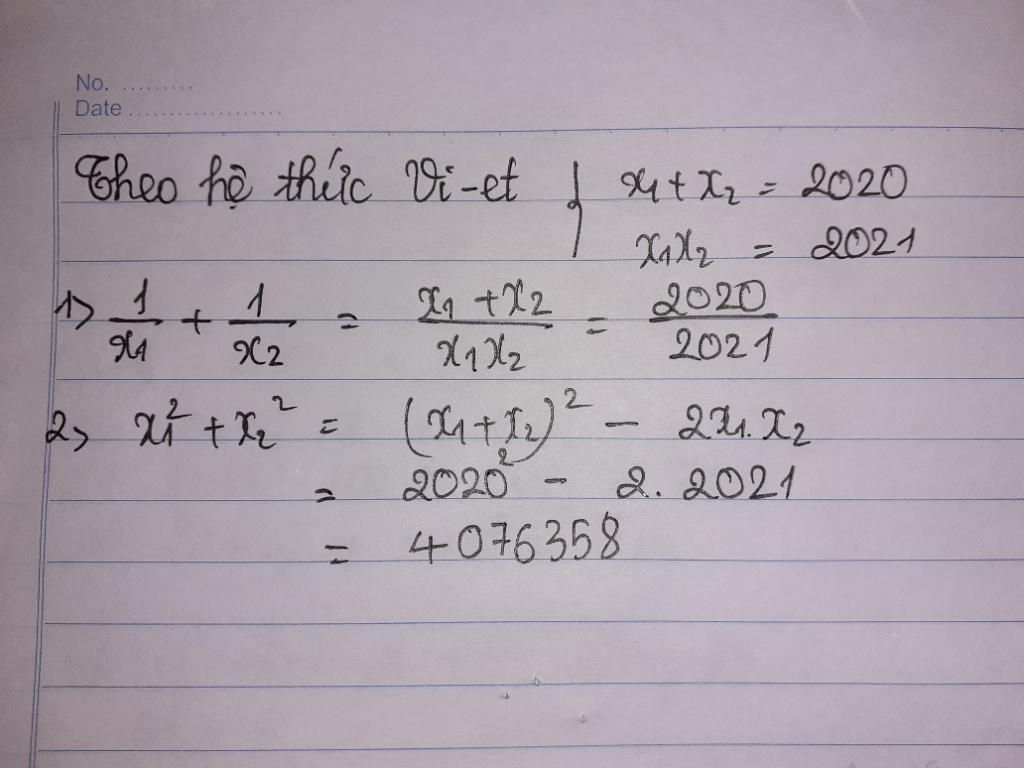 No. .........
Date ..................
Theo hệ thức Vi-et { x₁ + x₂ = 2020
x₁x₂ = 2021
1> 1/x₁ + 1/x₂ = (x₁ + x₂)/(x₁x₂) = 2020/2021
2> x₁² + x₂² = (x₁ + x₂)² - 2x₁.x₂
= 2020² - 2. 2021
= 4076358